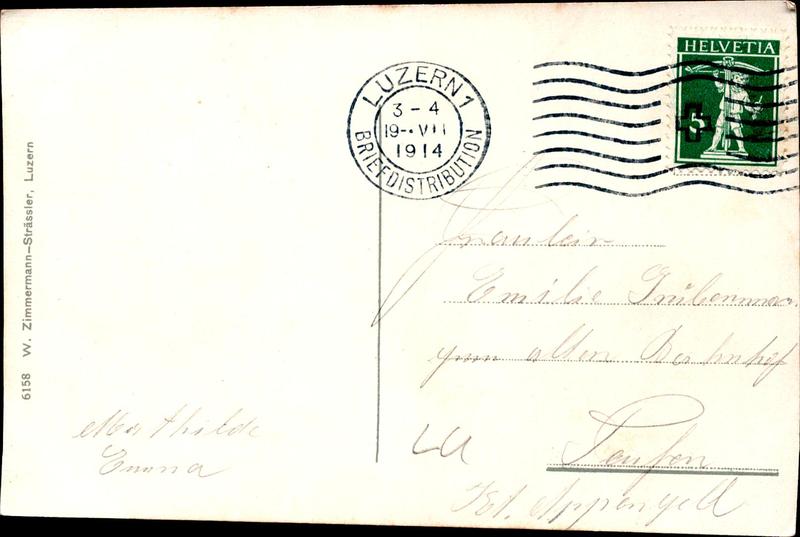 6158 W. Zimmermann–Strässler, Luzern
LUZERN 1
3–4
19 VII
1914
BRIEFDISTRIBUTION
HELVETIA
5
Fräulein
Emilie
zum alten Bahnhof
Teufen
Kt. Appenzell
Mathilde
Emma